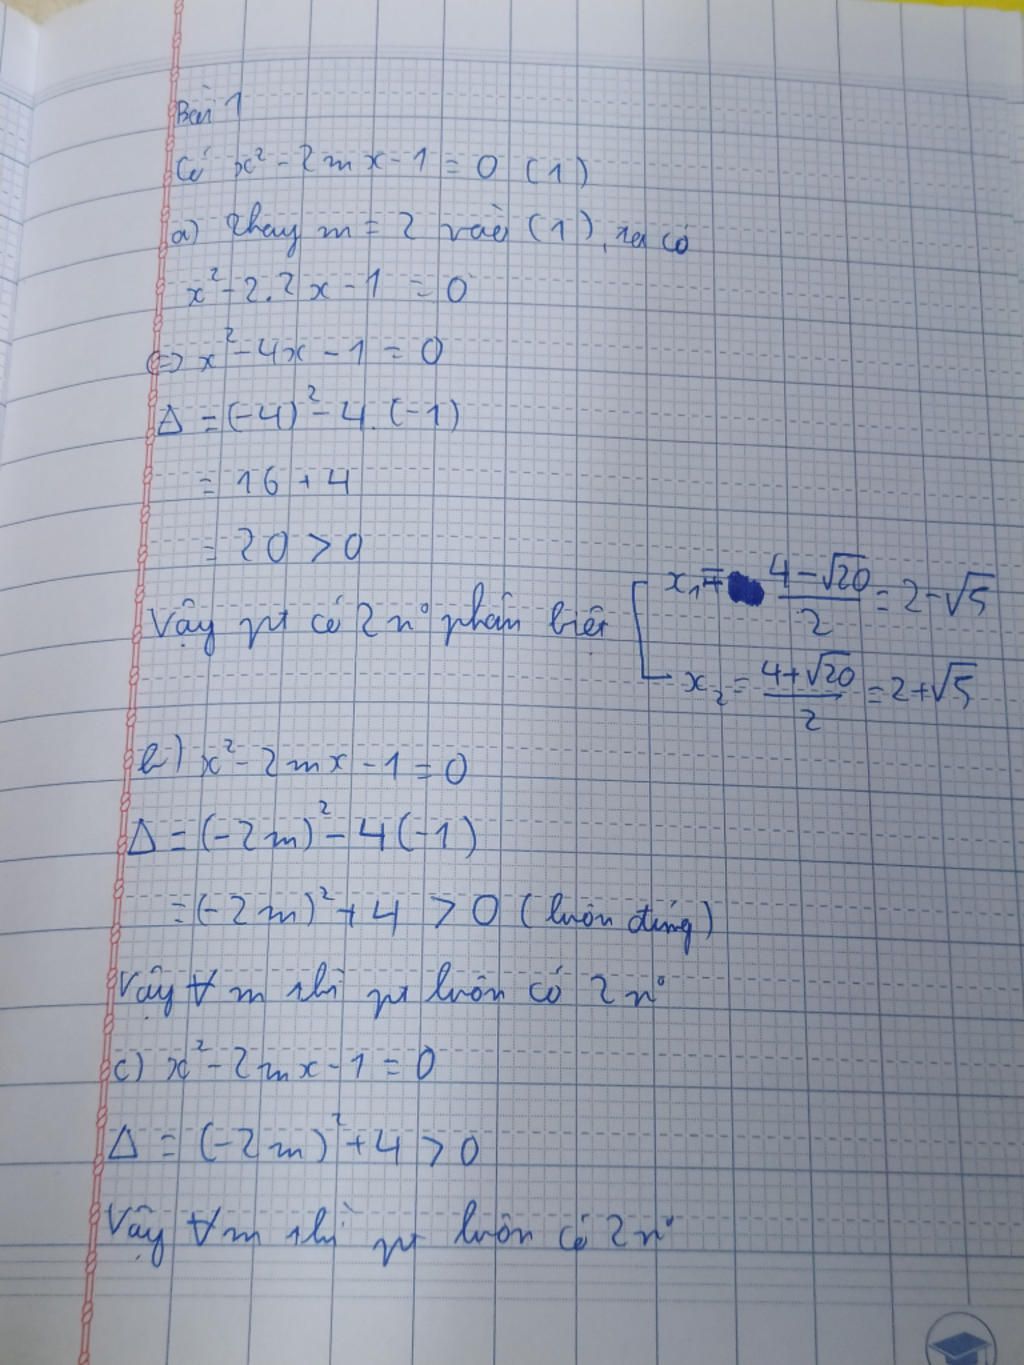 Bài 1
Có x² - 2mx - 1 = 0 (1)
a) Thay m = 2 vào (1), ta có
x² - 2.2x - 1 = 0
<=> x² - 4x - 1 = 0
Δ = (-4)² - 4.(-1)
= 16 + 4
= 20 > 0
Vậy pt có 2 n° phân biệt [ x₁ = (4 - √20)/2 = 2 - √5
x₂ = (4 + √20)/2 = 2 + √5
b) x² - 2mx - 1 = 0
Δ = (-2m)² - 4(-1)
= (-2m)² + 4 > 0 (luôn đúng)
Vậy ∀ m thì pt luôn có 2 n°
c) x² - 2mx - 1 = 0
Δ = (-2m)² + 4 > 0
Vậy ∀ m thì pt luôn có 2 n°